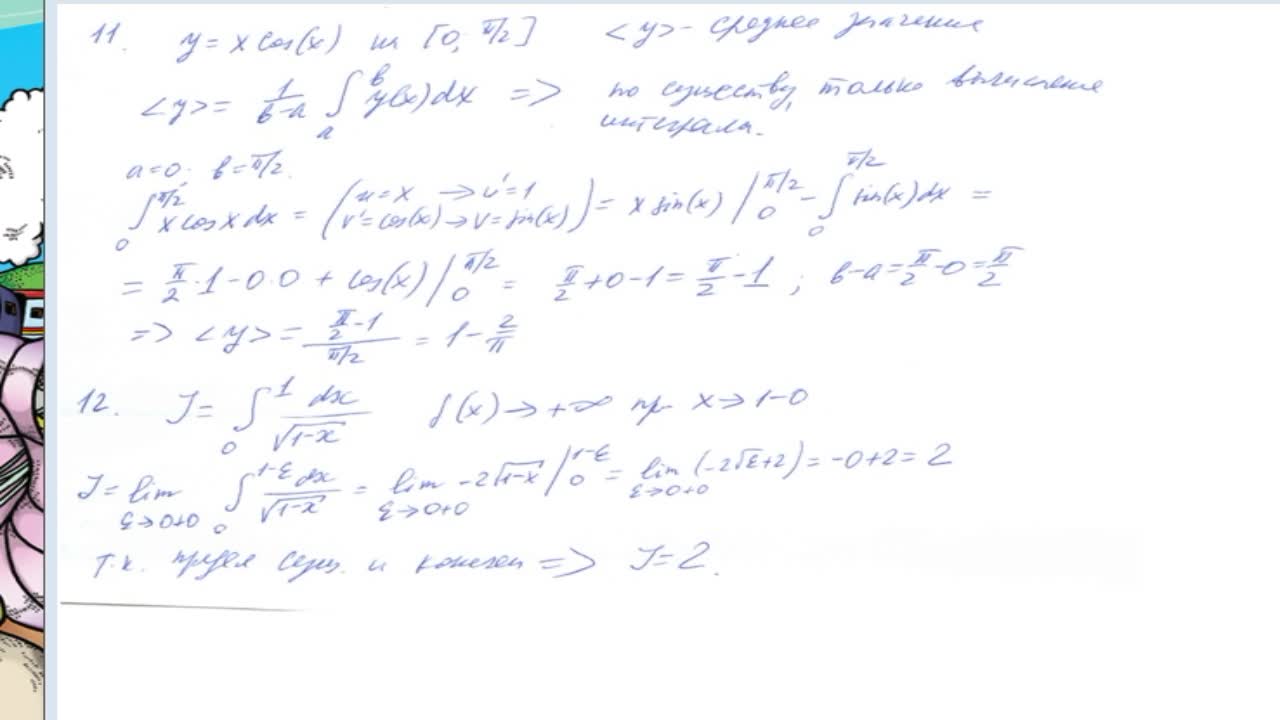 11. y = x cos(x) на [0, π/2] <y> - среднее значение
<y> = 1/(b-a) ∫_a^b y(x)dx => по существу, только вычисление
интеграла.
a=0. b=π/2.
∫_0^{π/2} x cos x dx = (u=x → u'=1 v'=cos(x) → v=sin(x)) = x sin(x) |_0^{π/2} - ∫_0^{π/2} sin(x)dx =
= π/2·1 - 0·0 + cos(x) |_0^{π/2} = π/2 + 0 - 1 = π/2 - 1 ; b-a = π/2 - 0 = π/2
=> <y> = (π/2 - 1)/(π/2) = 1 - 2/π
12. J = ∫_0^1 dx/√(1-x) f(x) → +∞ при x → 1-0
J = lim_{ε→0+0} ∫_0^{1-ε} dx/√(1-x) = lim_{ε→0+0} -2√(1-x) |_0^{1-ε} = lim_{ε→0+0} (-2√ε+2) = -0+2 = 2
т.к. предел сущ. и конечен => J=2.